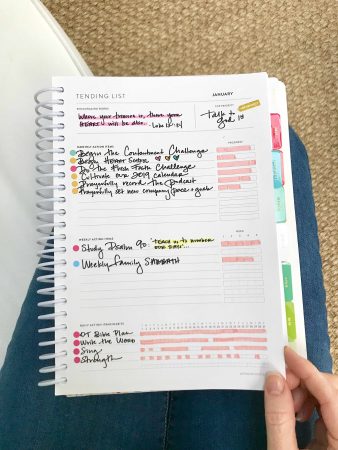 TENDING LIST JANUARY
ENCOURAGING WORDS
Where your treasure is, there your
HEART will be also. - Luke 12:34
Talk to
God 1st
MONTHLY ACTION ITEMS PROGRESS
Begin the Contentment Challenge
Begin Heart Series
Do the Fresh Faith Challenge
Cultivate our 2019 calendar
Prayerfully record the Podcast
Prayerfully set new company space + goals
WEEKLY ACTION ITEMS
Study Psalm 90 - teach us to number
our days...
Weekly family SABBATH
OT Bible Plan
Write the Word
Sing
Strength